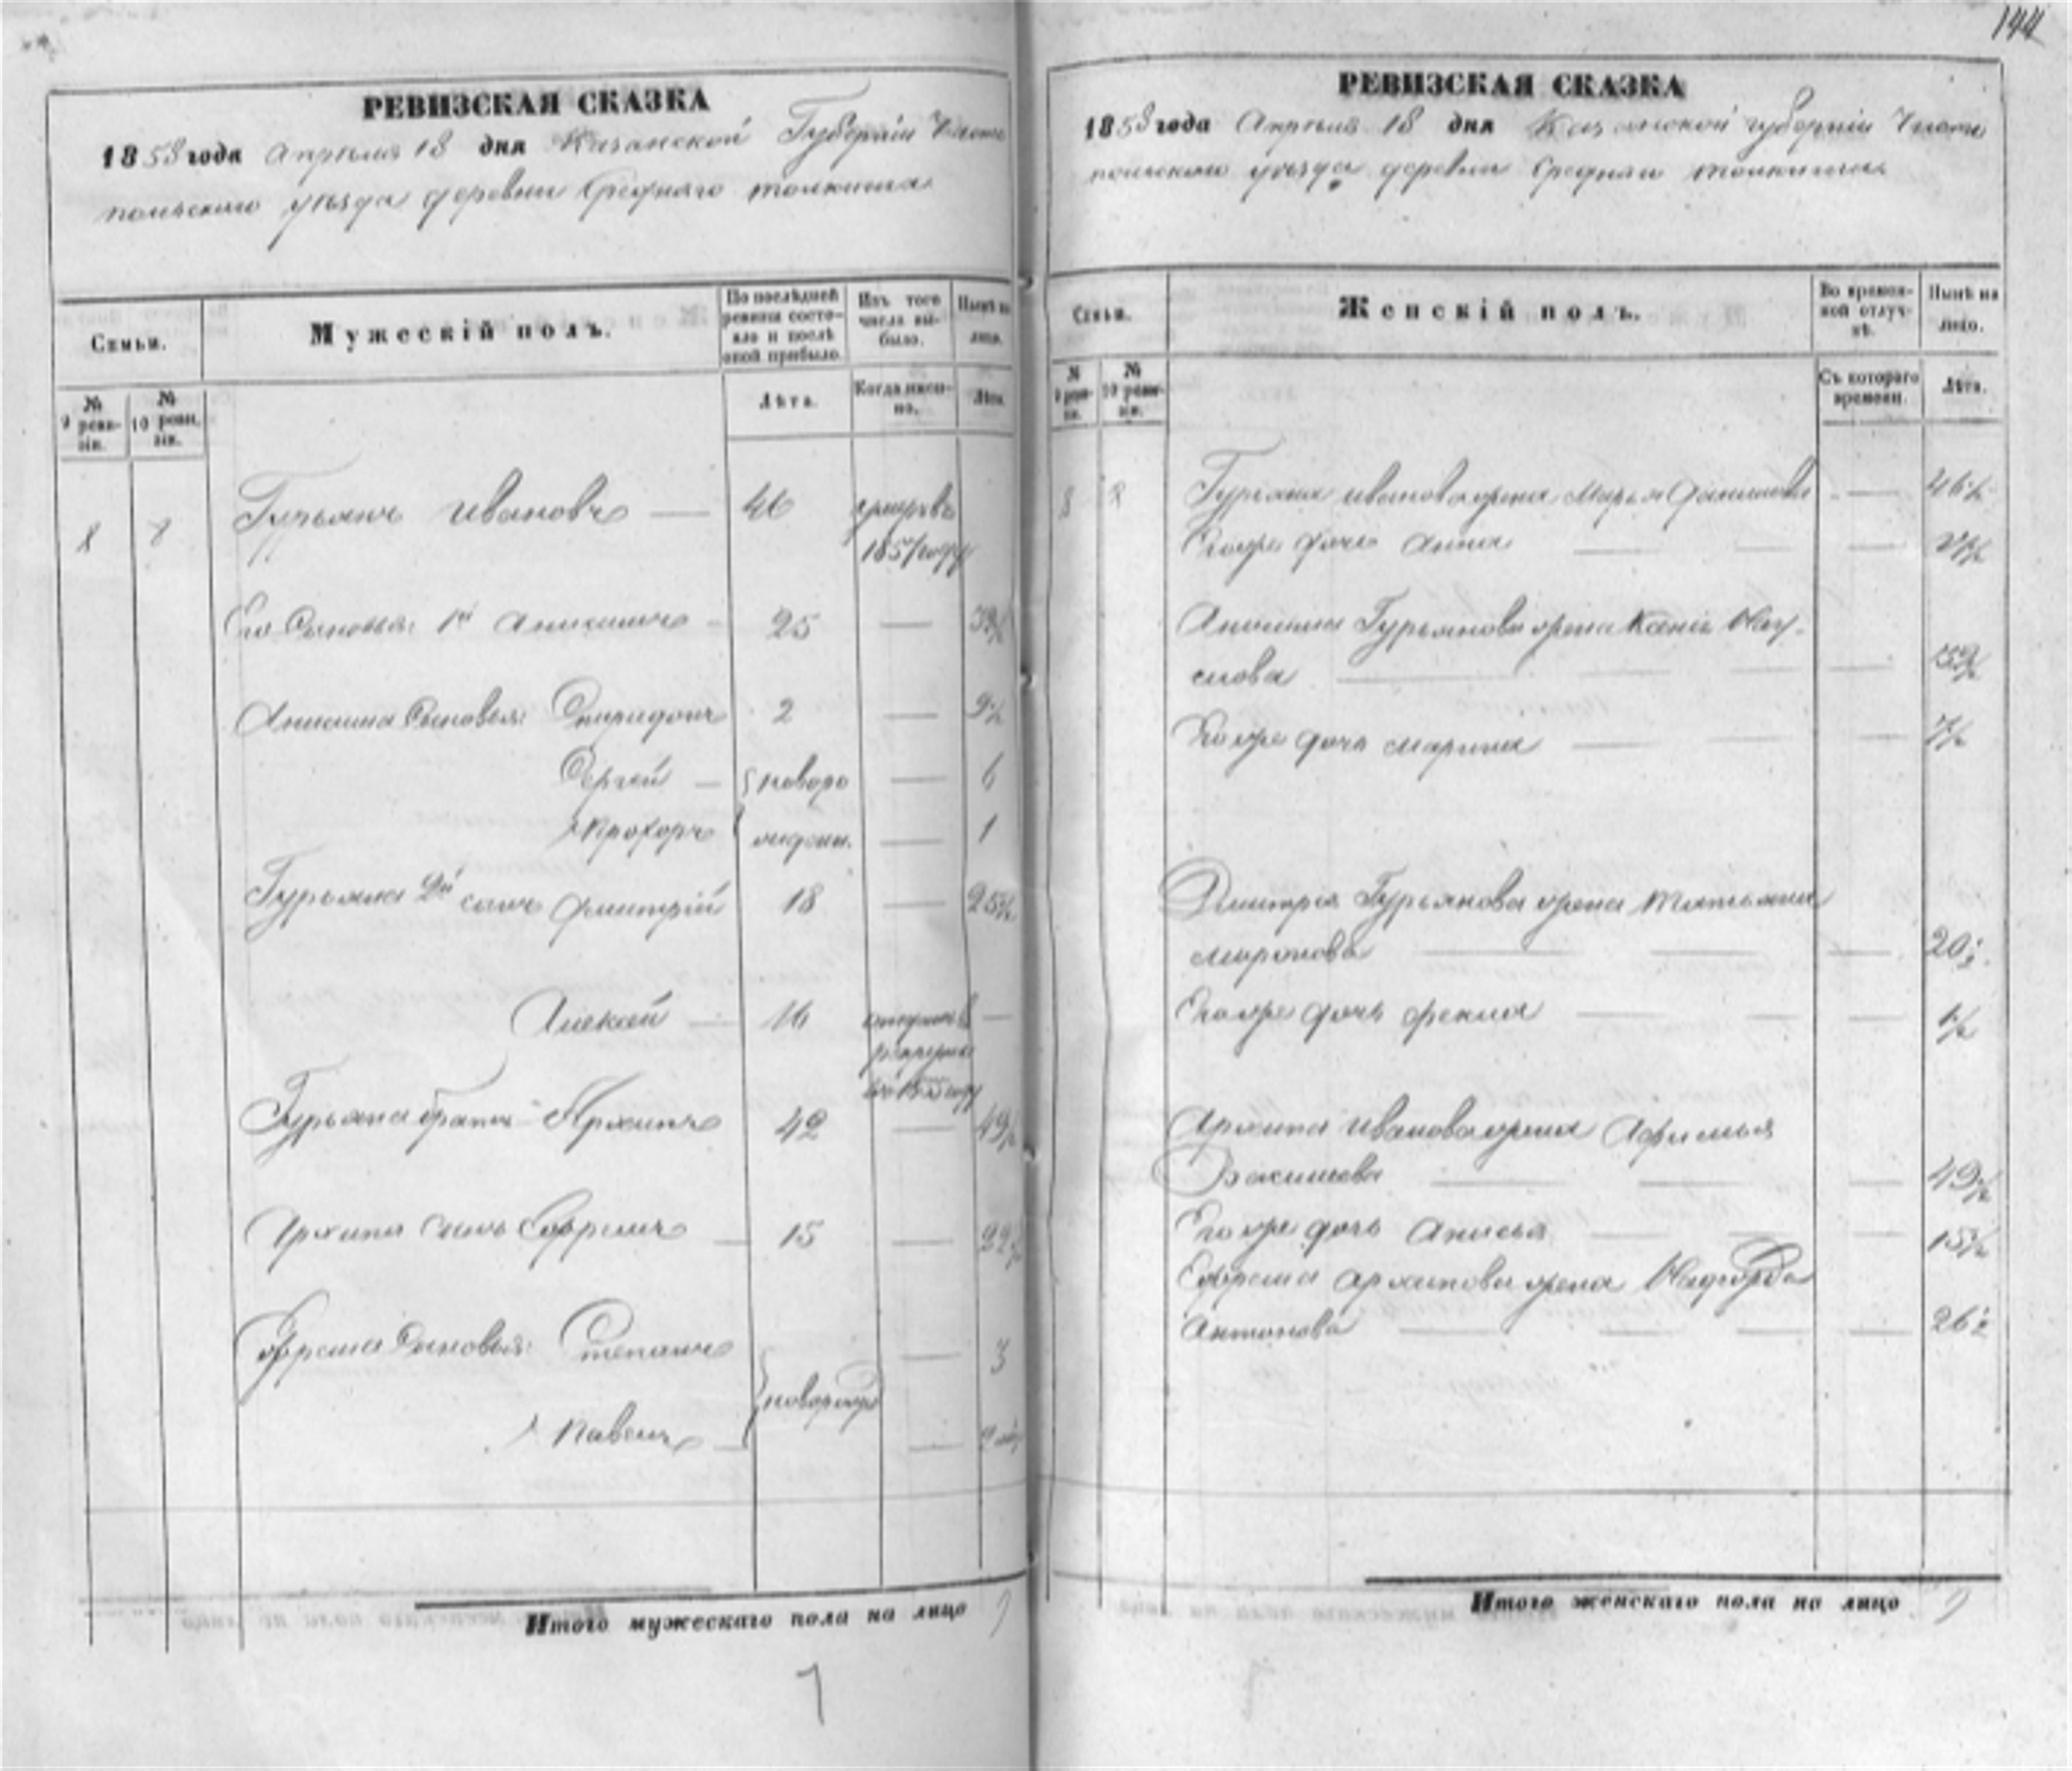 144
РЕВИЗСКАЯ СКАЗКА
1858 года Апреля 18 дня Казанской Губернiи Чисто
польскаго уезда деревни Средняго толкиша
Семьи.
Мужескiй полъ.
По послѣдней ревизiи состояло и послѣ оной прибыло.
Изъ того числа выбыло.
Нынѣ на лицо.
№ 9 ревизiи.
№ 10 ревизiи.
Лѣта.
Когда именно.
Лѣта.
8 8 Гурьянъ Ивановъ — 46 умръ въ
1857 году
Его Сыновья: 1й Анисимъ — 25 — 32½
Анисима Сыновья: Спиридонъ 2 — 9½
Сергей — новоро — 6
Прохоръ ждены. — 1
Гурьяна 2й сынъ Дмитрiй 18 — 25½
Алексей — 16 —
Гурьяна братъ Архипъ 42 — 49½
Архипа сынъ Ефремъ — 15 — 22½
Ефрема Сыновья: Степанъ — 3
новорожд
Павелъ — —
Итого мужескаго пола на лицо 7
7
РЕВИЗСКАЯ СКАЗКА
1858 года Апреля 18 дня Казанской губернiи Чисто
польскаго уезда деревни Средняго толкиша
Семьи.
Женскiй полъ.
Во временной отлучкѣ.
Нынѣ на лицо.
№ 9 ревизiи.
№ 10 ревизiи.
Съ котораго времени.
Лѣта.
8 8 Гурьяна Иванова жена Марья Данилова — 46½
Его же дочь Анна —
Анисима Гурьянова жена
—
Его же дочь Марина — 7½
Дмитрiя Гурьянова жена Татьяна
Миронова — 20½
Его же дочь Фекла — 1½
Архипа Иванова жена Афимья
— 49½
Его же дочь Анисья — 15½
Ефрема Архипова жена
Антонова — 26½
Итого женскаго пола на лицо